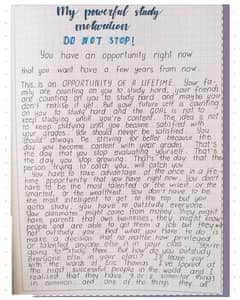 My powerful study
motivation
DO NOT STOP!
You have an opportunity right now
that you want have a few years from now
This is an OPPORTUNITY OF A LIFETIME. Your fa-
mily are counting on you to study hard, your friends
are counting on you to study hard and maybe you
don't realise it yet! But your future self is counting
on you to study hard and the GOAL is not to
keep studying until you're content. The idea is not
to keep studying until you become satisfied with
your grades. You should never be satisfied. You
should always be striving for better because the
day you become content with your grades. That's
the day that you stop evaluating yourself. That's
the day you stop growing. That's the day that the
person trying to catch you, will catch you
You have to take advantage of the once in a life-
time opportunity that you have right now. You don't
have to be the most talented or the wisest, or the
smartest, or the wealthiest. You don't have to be
the most intelligent to get to the top but you
gotta study, you have to outstudy everyone.
Your classmates might come from money. They might
have parents that own businesses, they might know
people and are able to get them a job but they
not outstudy you. And what you have to do is
make a decision that no matter how privileged
or talented anyone else is in your class. You're
going to study them. But how do you outstudy
everyone else in your class? If leave you
with the words of Eric Thomas: I looked at
the most successful people in the world and I
realised that they have 3 or 4 things
in common. and one of the things they all